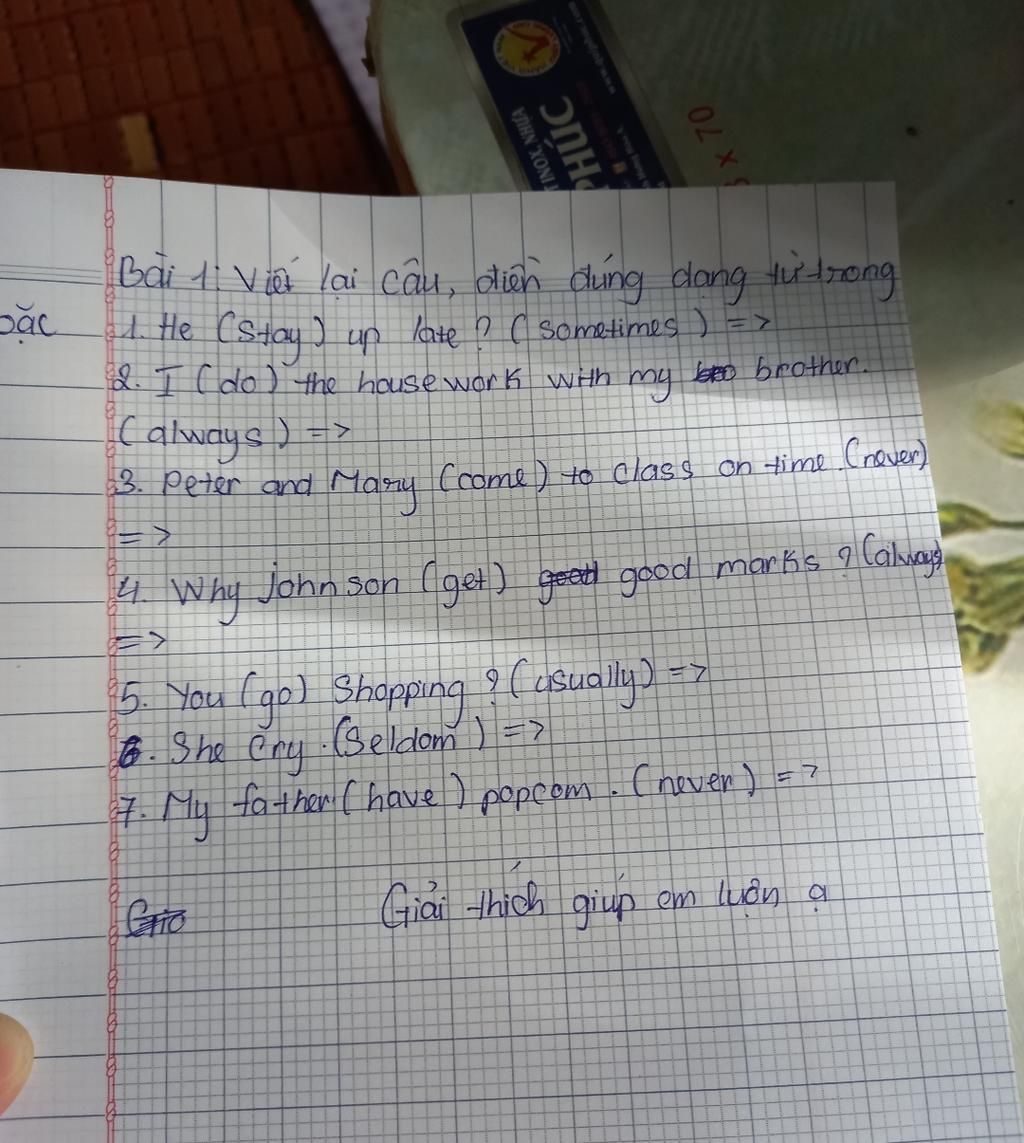 www.
INOX, NHỰA
PHÚC
x 70
Bài 1: Viết lại câu, điền đúng dạng từ trong
oặc
1. He (Stay) up late? (sometimes) =>
2. I (do) the housework with my brother.
(always) =>
3. Peter and Mary (come) to class on time. (never)
=>
4. Why Johnson (get) good marks? (always)
=>
5. You (go) Shopping? (usually) =>
6. She Cry. (Seldom) =>
7. My father (have) popcom. (never) =>
Giải thích giúp em luôn ạ